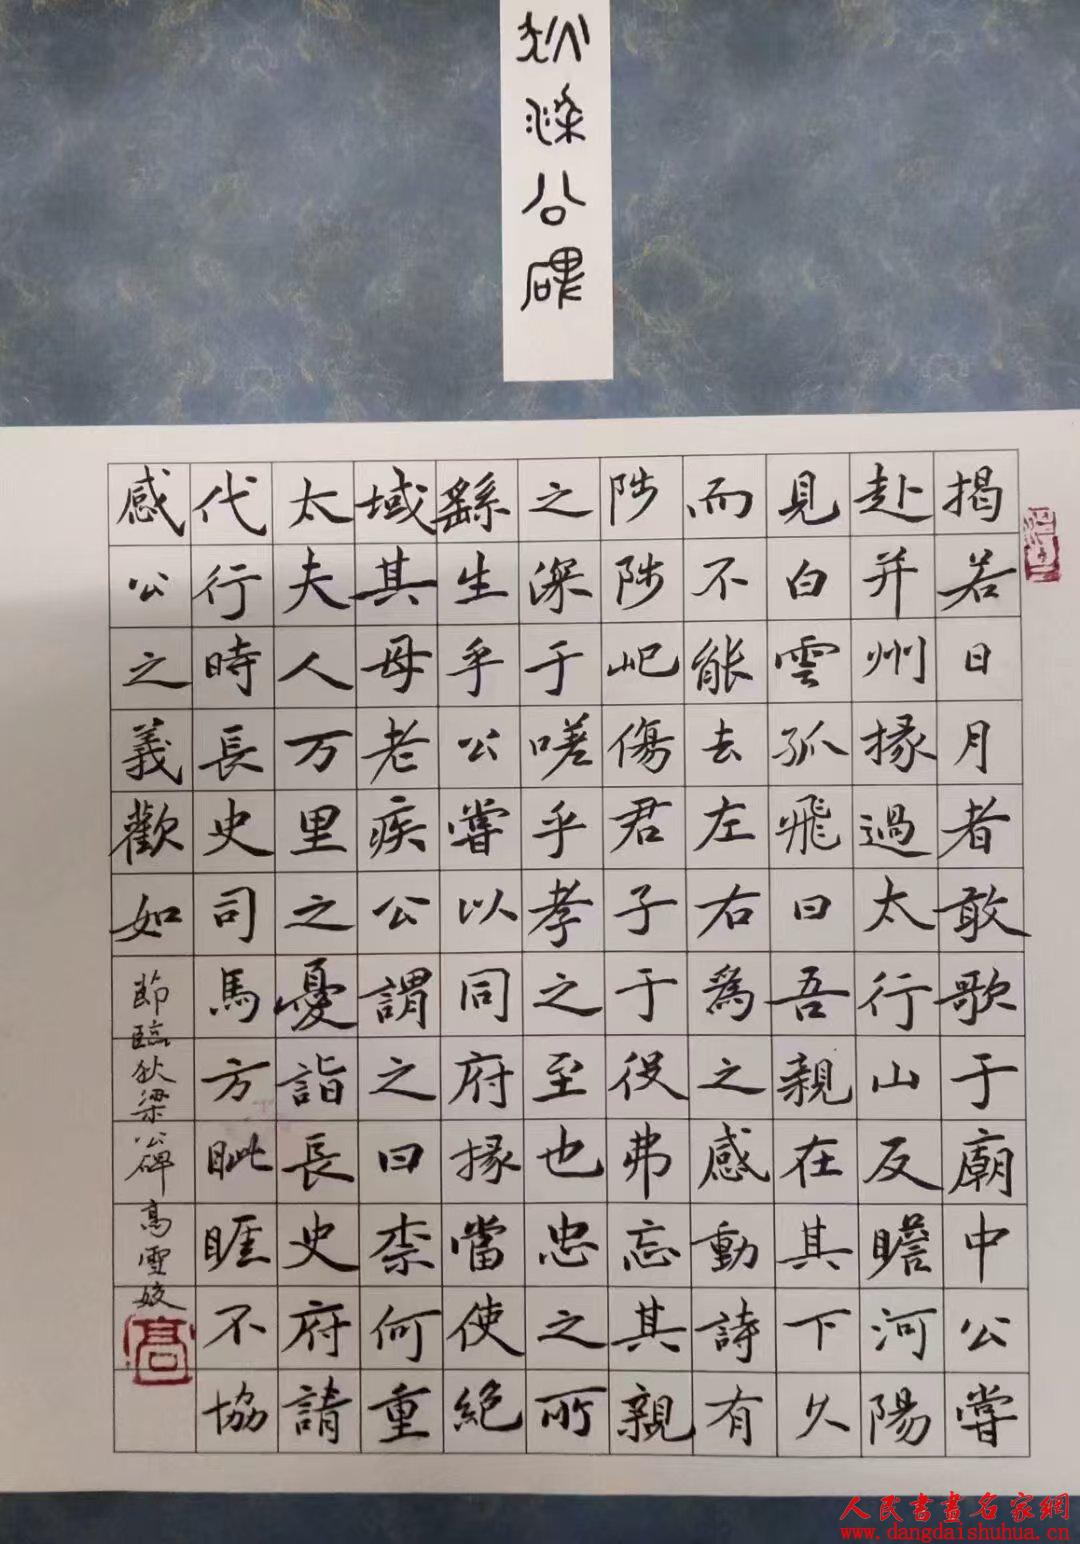 狄梁公碑
揭若日月者敢歌于廟中公嘗
赴并州掾過太行山反瞻河陽
見白雲孤飛曰吾親在其下久
而不能去左右為之感動詩有
陟陟屺傷君子于役弗忘其親
之深于嗟乎孝之至也忠之所
繇生乎公嘗以同府掾當使絶
域其母老疾公謂之曰柰何重
太夫人万里之憂詣長史府請
代行時長史司馬方眦睚不協
感公之義歡如
節臨狄梁公碑 高雪姣
高
人民書畫名家網
www.dangdaishuhua.cn